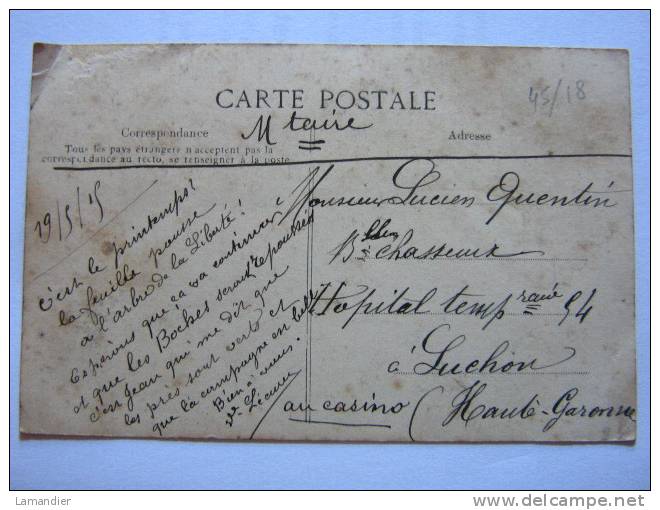 45/18
CARTE POSTALE
M taire
Correspondance
Adresse
Tous les pays étrangers n'acceptent pas la
correspondance au recto, se renseigner à la poste
19/5/15
c'est le printemps!
la feuille pousse
à l'arbre de la Liberté!
Espérons que ça va continuer
et que les Boches seront repoussés
c'est Jean qui me dit que
les prés sont verts et
que la campagne en
Bien à vous.
Monsieur Lucien Quentin
Chasseurs
Hopital temp raire 54
à Luchon
au casino (Haute-Garonne
Lamandier
www.delcampe.net